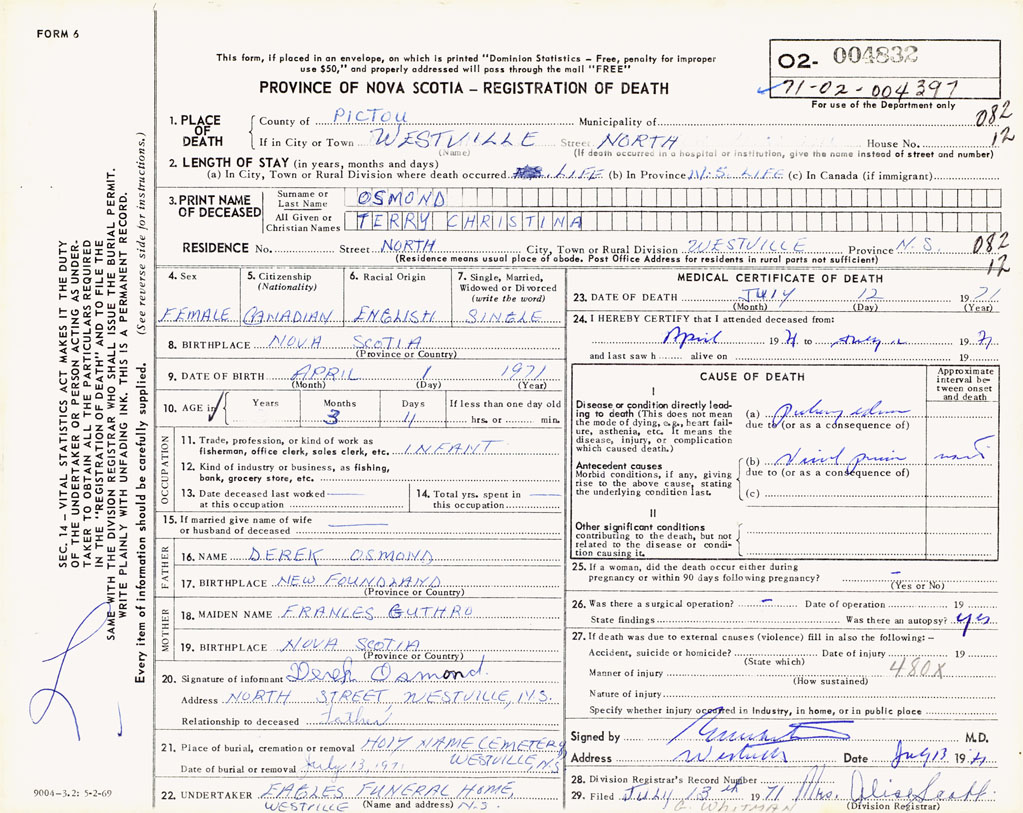 FORM 6
This form, if placed in an envelope, on which is printed "Dominion Statistics – Free, penalty for improper
use $50," and properly addressed will pass through the mail "FREE"
PROVINCE OF NOVA SCOTIA – REGISTRATION OF DEATH
02- 004832
71-02-004397
For use of the Department only
1. PLACE OF DEATH County of PICTOU Municipality of 082
If in City or Town WESTVILLE Street NORTH House No. 12
(Name) (If death occurred in a hospital or institution, give the name instead of street and number)
2. LENGTH OF STAY (in years, months and days)
(a) In City, Town or Rural Division where death occurred LIFE (b) In Province N.S. LIFE (c) In Canada (if immigrant)
3. PRINT NAME OF DECEASED Surname or Last Name OSMOND
All Given or Christian Names TERRY CHRISTINA
RESIDENCE No. Street NORTH City, Town or Rural Division WESTVILLE Province N.S. 082
(Residence means usual place of abode. Post Office Address for residents in rural parts not sufficient) 12
4. Sex 5. Citizenship (Nationality) 6. Racial Origin 7. Single, Married, Widowed or Divorced (write the word)
FEMALE CANADIAN ENGLISH SINGLE
8. BIRTHPLACE NOVA SCOTIA
(Province or Country)
9. DATE OF BIRTH APRIL 1 1971
(Month) (Day) (Year)
10. AGE in Years Months Days If less than one day old
3 11 hrs. or min.
OCCUPATION
11. Trade, profession, or kind of work as
fisherman, office clerk, sales clerk, etc. INFANT
12. Kind of industry or business, as fishing,
bank, grocery store, etc.
13. Date deceased last worked
at this occupation
14. Total yrs. spent in
this occupation
15. If married give name of wife
or husband of deceased
FATHER
16. NAME DEREK OSMOND
17. BIRTHPLACE NEW FOUNDLAND
(Province or Country)
MOTHER
18. MAIDEN NAME FRANCES GUTHRO
19. BIRTHPLACE NOVA SCOTIA
(Province or Country)
20. Signature of informant Derek Osmond
Address NORTH STREET, WESTVILLE, N.S.
Relationship to deceased Father
21. Place of burial, cremation or removal HOLY NAME CEMETERY
WESTVILLE, N.S.
Date of burial or removal July 13, 1971
22. UNDERTAKER EAGLES FUNERAL HOME,
WESTVILLE (Name and address) N.S.
MEDICAL CERTIFICATE OF DEATH
23. DATE OF DEATH JULY 12 1971
(Month) (Day) (Year)
24. I HEREBY CERTIFY that I attended deceased from:
April 1971 to July 12 1971
and last saw h alive on 19
CAUSE OF DEATH
Approximate interval between onset and death
I
Disease or condition directly lead-
ing to death (This does not mean
the mode of dying, e.g., heart fail-
ure, asthenia, etc. It means the
disease, injury, or complication
which caused death.)
(a)
due to (or as a consequence of)
Antecedent causes
Morbid conditions, if any, giving
rise to the above cause, stating
the underlying condition last.
(b)
due to (or as a consequence of)
(c)
II
Other significant conditions
contributing to the death, but not
related to the disease or condi-
tion causing it.
25. If a woman, did the death occur either during
pregnancy or within 90 days following pregnancy? –
(Yes or No)
26. Was there a surgical operation? – Date of operation 19
State findings Was there an autopsy? yes
27. If death was due to external causes (violence) fill in also the following: –
Accident, suicide or homicide? Date of injury 19
(State which)
Manner of injury 480X
(How sustained)
Nature of injury
Specify whether injury occurred in Industry, in home, or in public place
Signed by M.D.
Address Westville Date July 13 1971
28. Division Registrar's Record Number
29. Filed July 13th 1971 Mrs. Alice Scott
G. WHITMAN (Division Registrar)
SEC. 14 – VITAL STATISTICS ACT MAKES IT THE DUTY
OF THE UNDERTAKER OR PERSON ACTING AS UNDER-
TAKER TO OBTAIN ALL THE PARTICULARS REQUIRED
IN THE "REGISTRATION OF DEATH" AND TO FILE THE
SAME WITH THE DIVISION REGISTRAR WHO SHALL ISSUE THE BURIAL PERMIT.
WRITE PLAINLY WITH UNFADING INK. THIS IS A PERMANENT RECORD.
Every item of information should be carefully supplied. (See reverse side for instructions.)
9004-3.2: 5-2-69